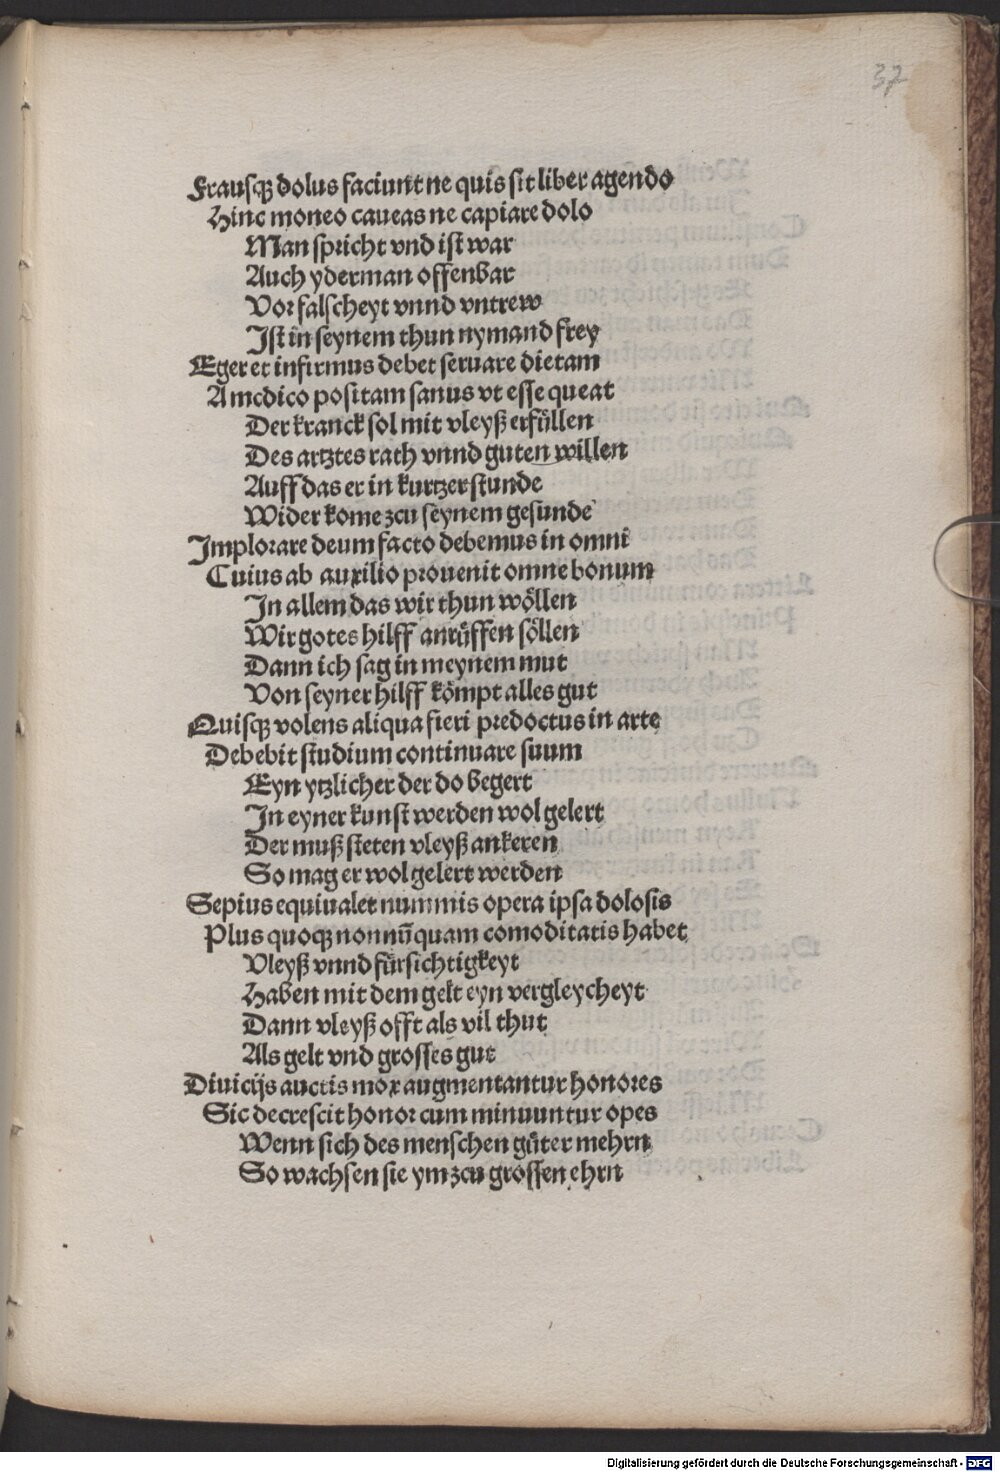 37
Frausqꝫ dolus faciunt ne quis sit liber agendo
Hinc moneo caueas ne capiare dolo
Man spricht vnd ist war
Auch yderman offenbar
Vor falscheyt vnnd vntrew
Ist in seynem thun nymand frey
Eger et infirmus debet seruare dietam
A medico positam sanus vt esse queat
Der kranck sol mit vleyß erfüllen
Des artztes rath vnnd guten willen
Auff das er in kurtzer stunde
Wider kome zcu seynem gesunde
Implorare deum facto debemus in omni
Cuius ab auxilio prouenit omne bonum
In allem das wir thun wöllen
Wir gotes hilff anrüffen söllen
Dann ich sag in meynem mut
Von seyner hilff kömpt alles gut
Quisqꝫ volens aliqua fieri predoctus in arte
Debebit studium continuare suum
Eyn ytzlicher der do begert
In eyner kunst werden wol gelert
Der muß steten vleyß ankeren
So mag er wol gelert werden
Sepius equiualet nummis opera ipsa dolosis
Plus quoqꝫ nonnūquam comoditatis habet
Vleyß vnnd fürsichtigkeyt
Haben mit dem gelt eyn vergleycheyt
Dann vleyß offt als vil thut
Als gelt vnd grosses gut
Diuicijs auctis mox augmentantur honores
Sic decrescit honor cum minuuntur opes
Wenn sich des menschen güter mehrn
So wachsen sie ym zcu grossen ehrn
Digitalisierung gefördert durch die Deutsche Forschungsgemeinschaft - DFG